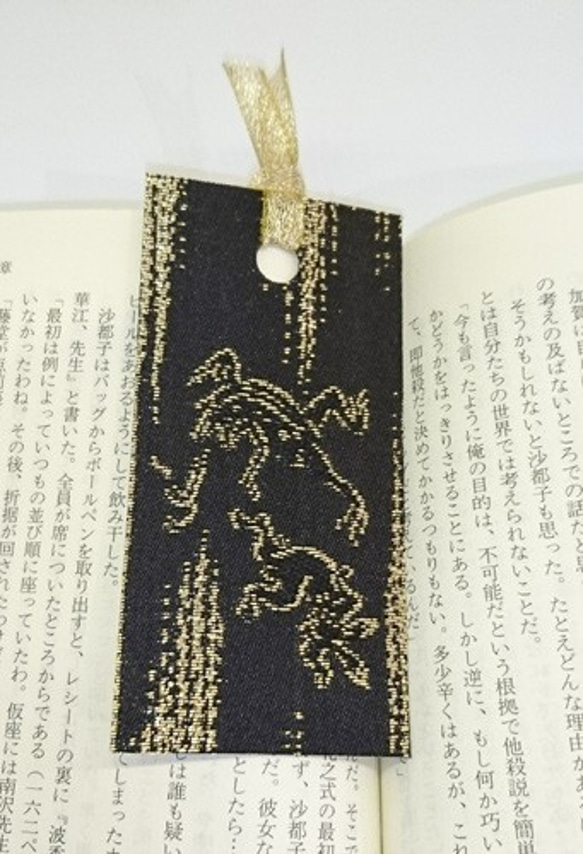 加賀は
の考えの及ばないところでの話だと思
そうかもしれないと沙都子も思った。たとえどんな理由
とは自分たちの世界では考えられないことだ。
「今も言ったように俺の目的は、不可能だという根拠で他殺説を簡単
かどうかをはっきりさせることにある。しかし逆に、もし何か巧い
て、即他殺だと決めてかかるつもりもない。多少辛くはあるが、これ
考えているんだ」
だ。そこで
之式の最初
ず、沙都子
だ。彼女な
としたら…
は誰も疑い
てしまった
ビールをあおるようにして飲み干した。
沙都子はバッグからボールペンを取り出すと、レシートの裏に『波
華江、先生』と書いた。全員が席についたところからである（一六二ペ
「最初は例によっていつもの並び順に座っていたわ。仮座には南沢先生
いなかったわね。その後、折据が回された
「藤堂が
章